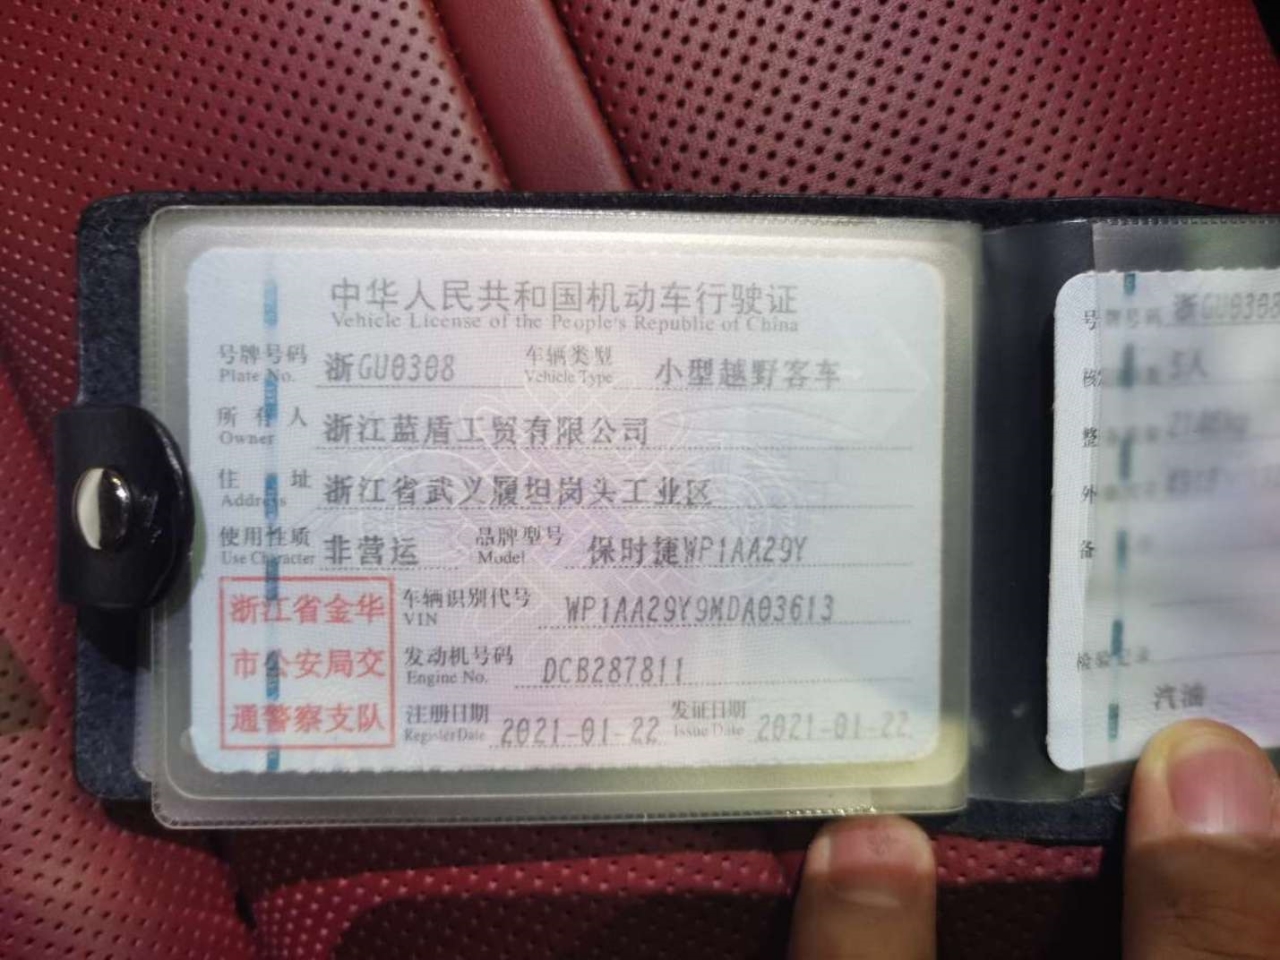 中华人民共和国机动车行驶证
Vehicle License of the People's Republic of China
号牌号码 浙GU0308 车辆类型 小型越野客车
Plate No. Vehicle Type
所有人 浙江蓝盾工贸有限公司
Owner
住址 浙江省武义履坦岗头工业区
Address
使用性质 非营运 品牌型号 保时捷WP1AA29Y
Use Character Model
浙江省金华
市公安局交
通警察支队
车辆识别代号 WP1AA29Y9MDA03613
VIN
发动机号码 DCB287811
Engine No.
注册日期 2021-01-22 发证日期 2021-01-22
Register Date Issue Date
号牌号码 浙GU0308
5人
整
外
备
检验记录
汽油